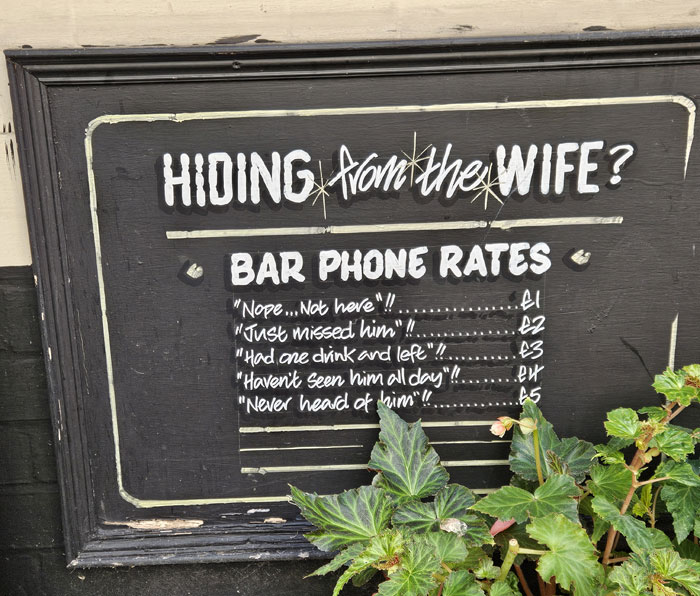 HIDING from the WIFE?
BAR PHONE RATES
"Nope...Not here"!!..............£1
"Just missed him"!!..............£2
"Had one drink and left"!!..........£3
"Haven't seen him all day"!!........£4
"Never heard of him"!!............£5